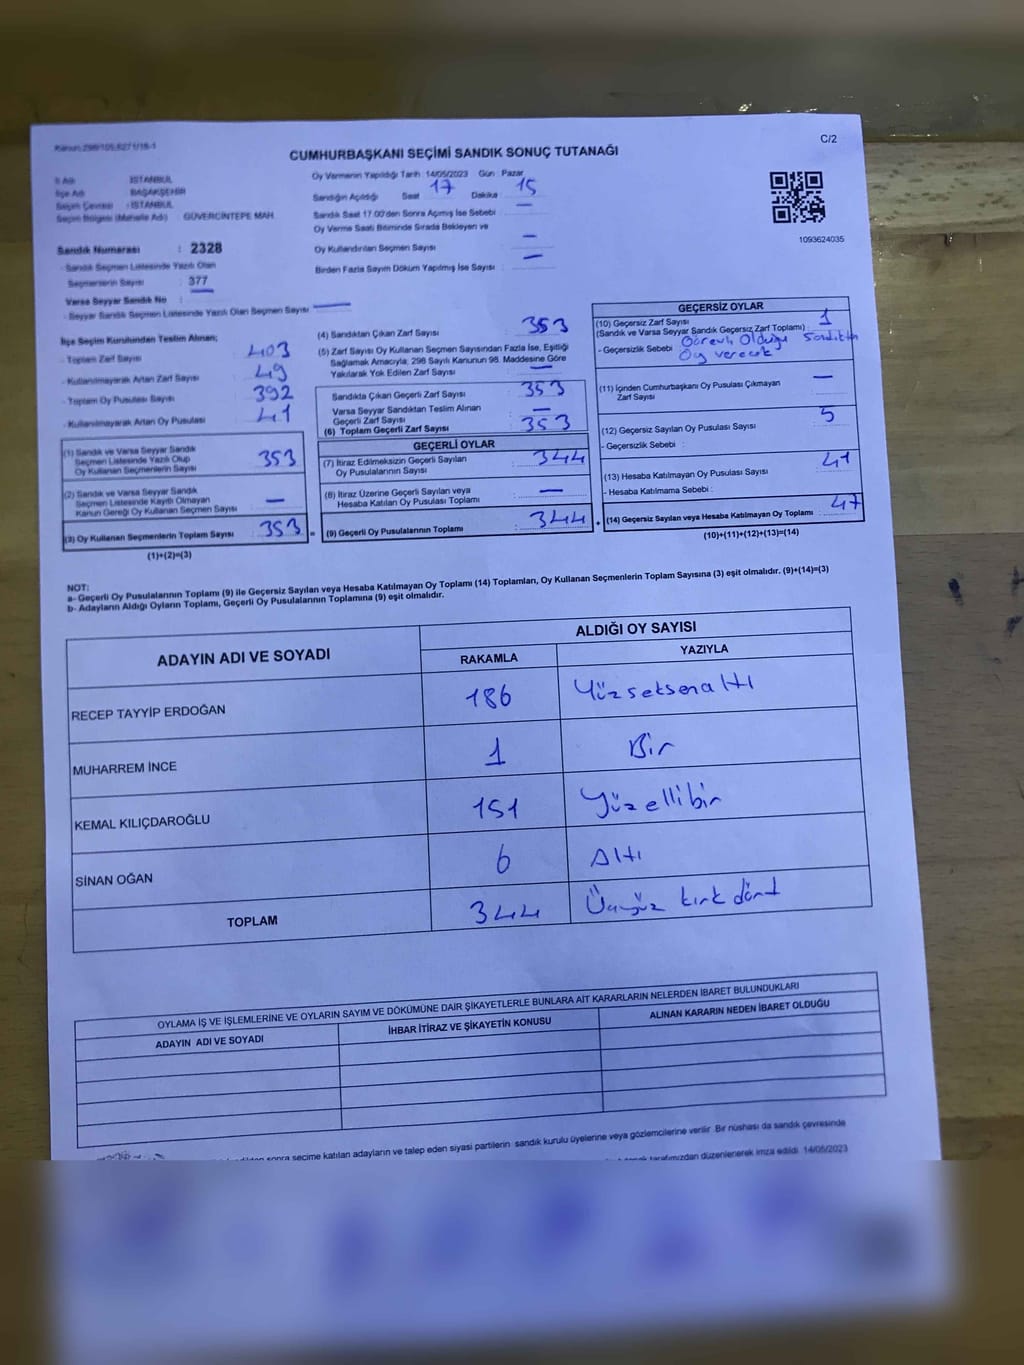 Kanun:298/105,6271/18-1
C/2
CUMHURBAŞKANI SEÇİMİ SANDIK SONUÇ TUTANAĞI
İl Adı : İSTANBUL
İlçe Adı : BAŞAKŞEHİR
Seçim Çevresi : İSTANBUL
Seçim Bölgesi (Mahalle Adı) : GÜVERCİNTEPE MAH.
Oy Vermenin Yapıldığı Tarih : 14/05/2023 Gün : Pazar
Sandığın Açıldığı Saat : 17 Dakika : 15
Sandık Saat 17.00'den Sonra Açılmış İse Sebebi : —
Oy Verme Saati Bitiminde Sırada Bekleyen ve
Oy Kullandırılan Seçmen Sayısı : —
Birden Fazla Sayım Döküm Yapılmış İse Sayısı : —
1093624035
Sandık Numarası : 2328
- Sandık Seçmen Listesinde Yazılı Olan
Seçmenlerin Sayısı : 377
Varsa Seyyar Sandık No : —
- Seyyar Sandık Seçmen Listesinde Yazılı Olan Seçmen Sayısı : —
İlçe Seçim Kurulundan Teslim Alınan;
- Toplam Zarf Sayısı : 403
- Kullanılmayarak Artan Zarf Sayısı : 49
- Toplam Oy Pusulası Sayısı : 392
- Kullanılmayarak Artan Oy Pusulası : 41
(1) Sandık ve Varsa Seyyar Sandık
Seçmen Listesinde Yazılı Olup
Oy Kullanan Seçmenlerin Sayısı : 353
(2) Sandık ve Varsa Seyyar Sandık
Seçmen Listesinde Kayıtlı Olmayan
Kanun Gereği Oy Kullanan Seçmen Sayısı : —
(3) Oy Kullanan Seçmenlerin Toplam Sayısı : 353 =
(1)+(2)=(3)
(4) Sandıktan Çıkan Zarf Sayısı : 353
(5) Zarf Sayısı Oy Kullanan Seçmen Sayısından Fazla İse, Eşitliği
Sağlamak Amacıyla, 298 Sayılı Kanunun 98. Maddesine Göre
Yakılarak Yok Edilen Zarf Sayısı : —
Sandıkta Çıkan Geçerli Zarf Sayısı : 353
Varsa Seyyar Sandıktan Teslim Alınan
Geçerli Zarf Sayısı : —
(6) Toplam Geçerli Zarf Sayısı : 353
GEÇERLİ OYLAR
(7) İtiraz Edilmeksizin Geçerli Sayılan
Oy Pusulalarının Sayısı : 344
(8) İtiraz Üzerine Geçerli Sayılan veya
Hesaba Katılan Oy Pusulası Toplamı : —
(9) Geçerli Oy Pusulalarının Toplamı : 344 +
GEÇERSİZ OYLAR
(10) Geçersiz Zarf Sayısı
(Sandık ve Varsa Seyyar Sandık Geçersiz Zarf Toplamı) : 1
- Geçersizlik Sebebi : Görevli Olduğu Sandıktan
Oy verecek
(11) İçinden Cumhurbaşkanı Oy Pusulası Çıkmayan
Zarf Sayısı : —
(12) Geçersiz Sayılan Oy Pusulası Sayısı : 5
- Geçersizlik Sebebi :
(13) Hesaba Katılmayan Oy Pusulası Sayısı : 41
- Hesaba Katılmama Sebebi :
(14) Geçersiz Sayılan veya Hesaba Katılmayan Oy Toplamı : 47
(10)+(11)+(12)+(13)=(14)
NOT:
a- Geçerli Oy Pusulalarının Toplamı (9) ile Geçersiz Sayılan veya Hesaba Katılmayan Oy Toplamı (14) Toplamları, Oy Kullanan Seçmenlerin Toplam Sayısına (3) eşit olmalıdır. (9)+(14)=(3)
b- Adayların Aldığı Oyların Toplamı, Geçerli Oy Pusulalarının Toplamına (9) eşit olmalıdır.
ADAYIN ADI VE SOYADI
ALDIĞI OY SAYISI
RAKAMLA YAZIYLA
RECEP TAYYİP ERDOĞAN 186 Yüzseksenaltı
MUHARREM İNCE 1 Bir
KEMAL KILIÇDAROĞLU 151 Yüzellibir
SİNAN OĞAN 6 Altı
TOPLAM 344 Üçyüz kırk dört
OYLAMA İŞ VE İŞLEMLERİNE VE OYLARIN SAYIM VE DÖKÜMÜNE DAİR ŞİKAYETLERLE BUNLARA AİT KARARLARIN NELERDEN İBARET BULUNDUKLARI
ADAYIN ADI VE SOYADI İHBAR İTİRAZ VE ŞİKAYETİN KONUSU ALINAN KARARIN NEDEN İBARET OLDUĞU
sonra seçime katılan adayların ve talep eden siyasi partilerin sandık kurulu üyelerine veya gözlemcilerine verilir. Bir nüshası da sandık çevresinde
tarafımızdan düzenlenerek imza edildi. 14/05/2023